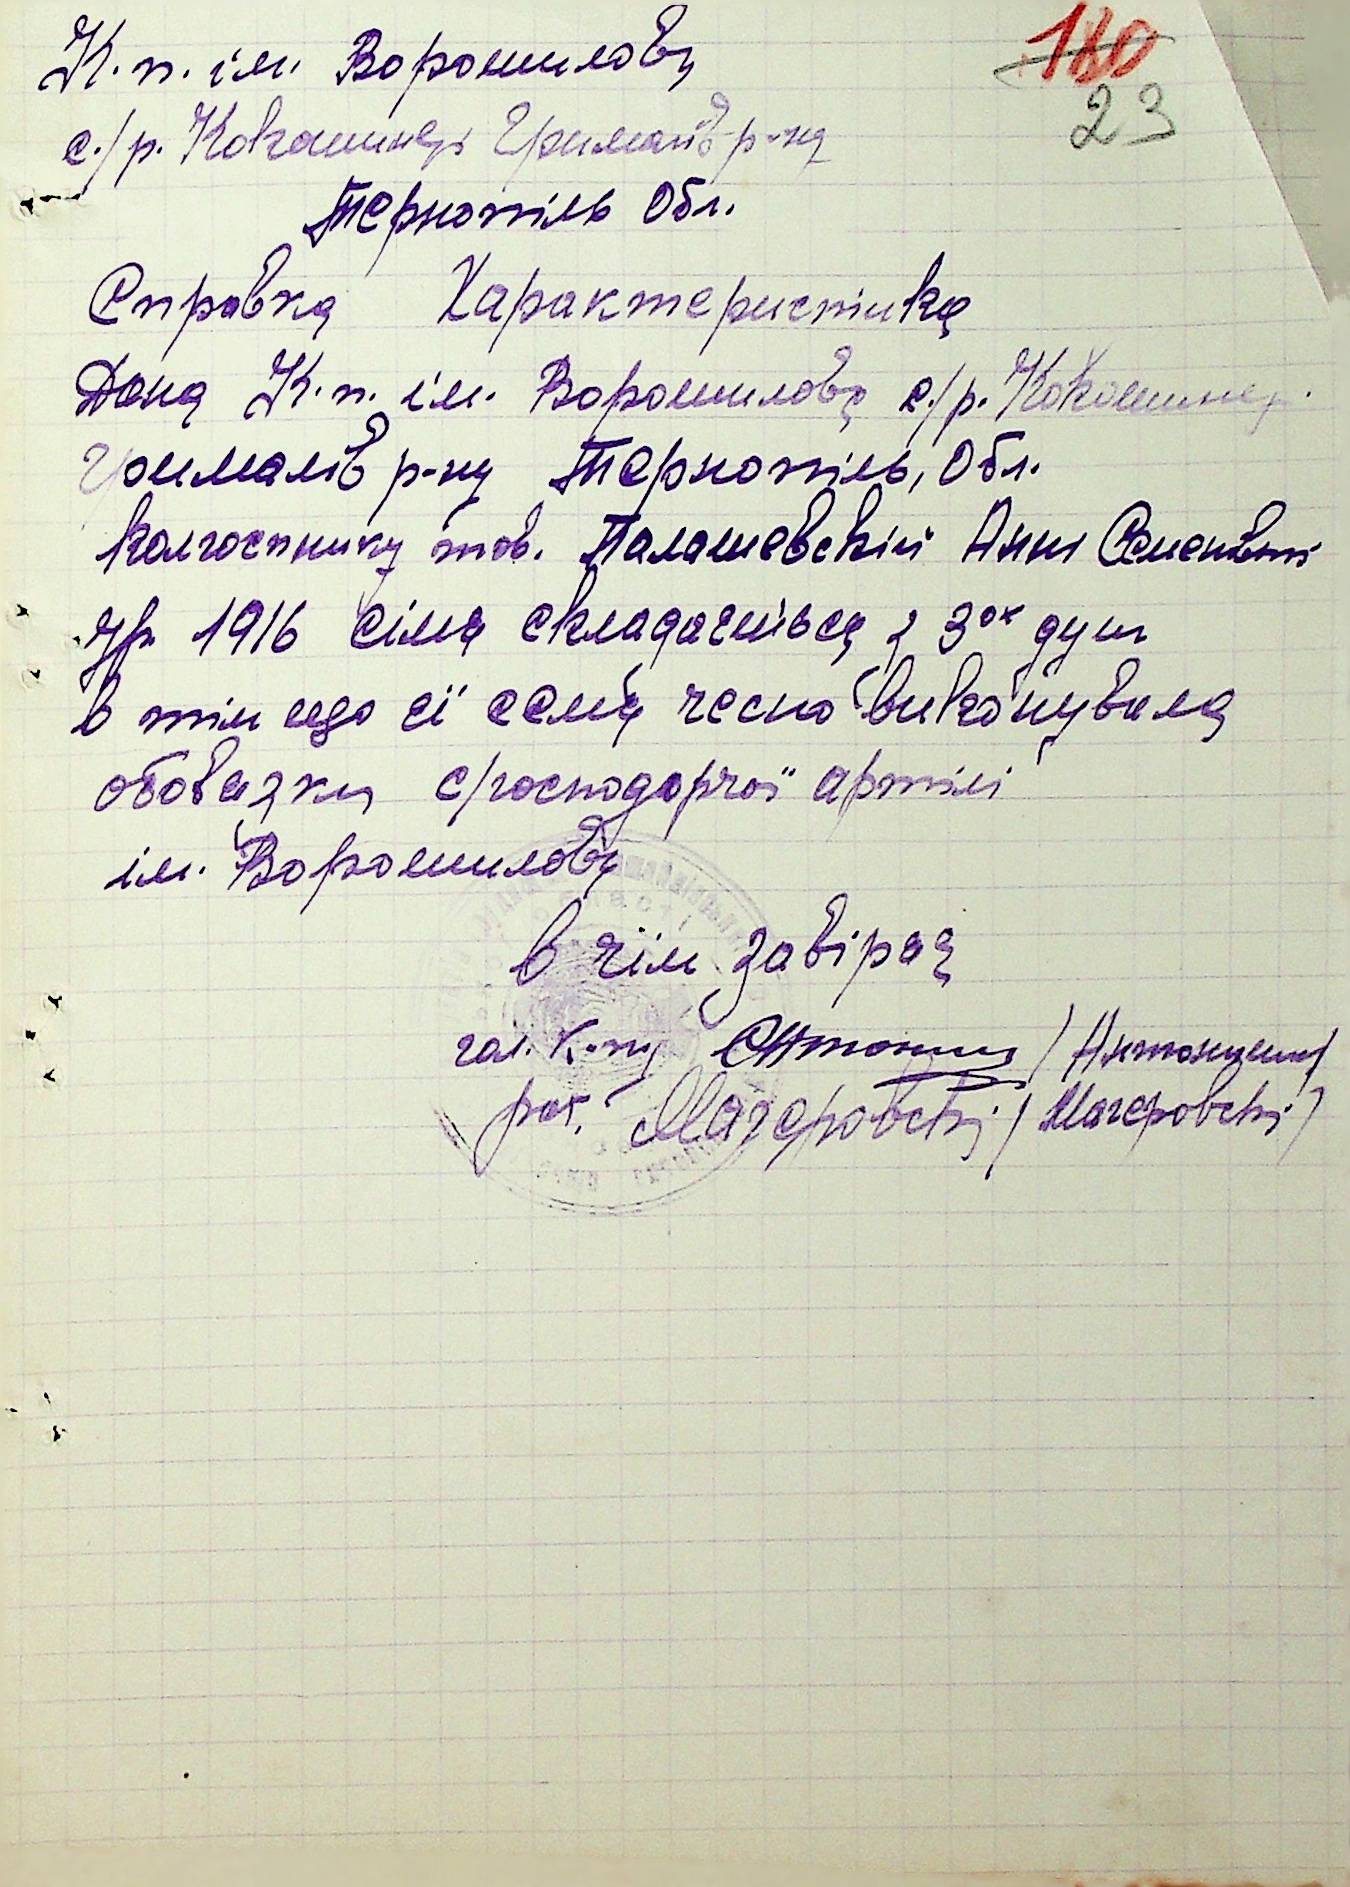 180
23
К.п. ім. Ворошилову
с/р. Кокошинеці Грималів р-ну
Тернопіль Обл.
Справка Характеристика
Дана К.п. ім. Ворошилова с/р. Кокошинец.
Грималів р-ну Тернопіль, Обл.
колгоспнику тов. Палашевській Анні Семенівні
ур. 1916 сімя складаеться з 3ох душ
в тім що єї семя чесно виконувала
обовязки с/господарчої артілі
ім. Ворошилова
в чім завірая
гол. К-пу /Антонишин/
рах. Магеровскі /Магеровскі/